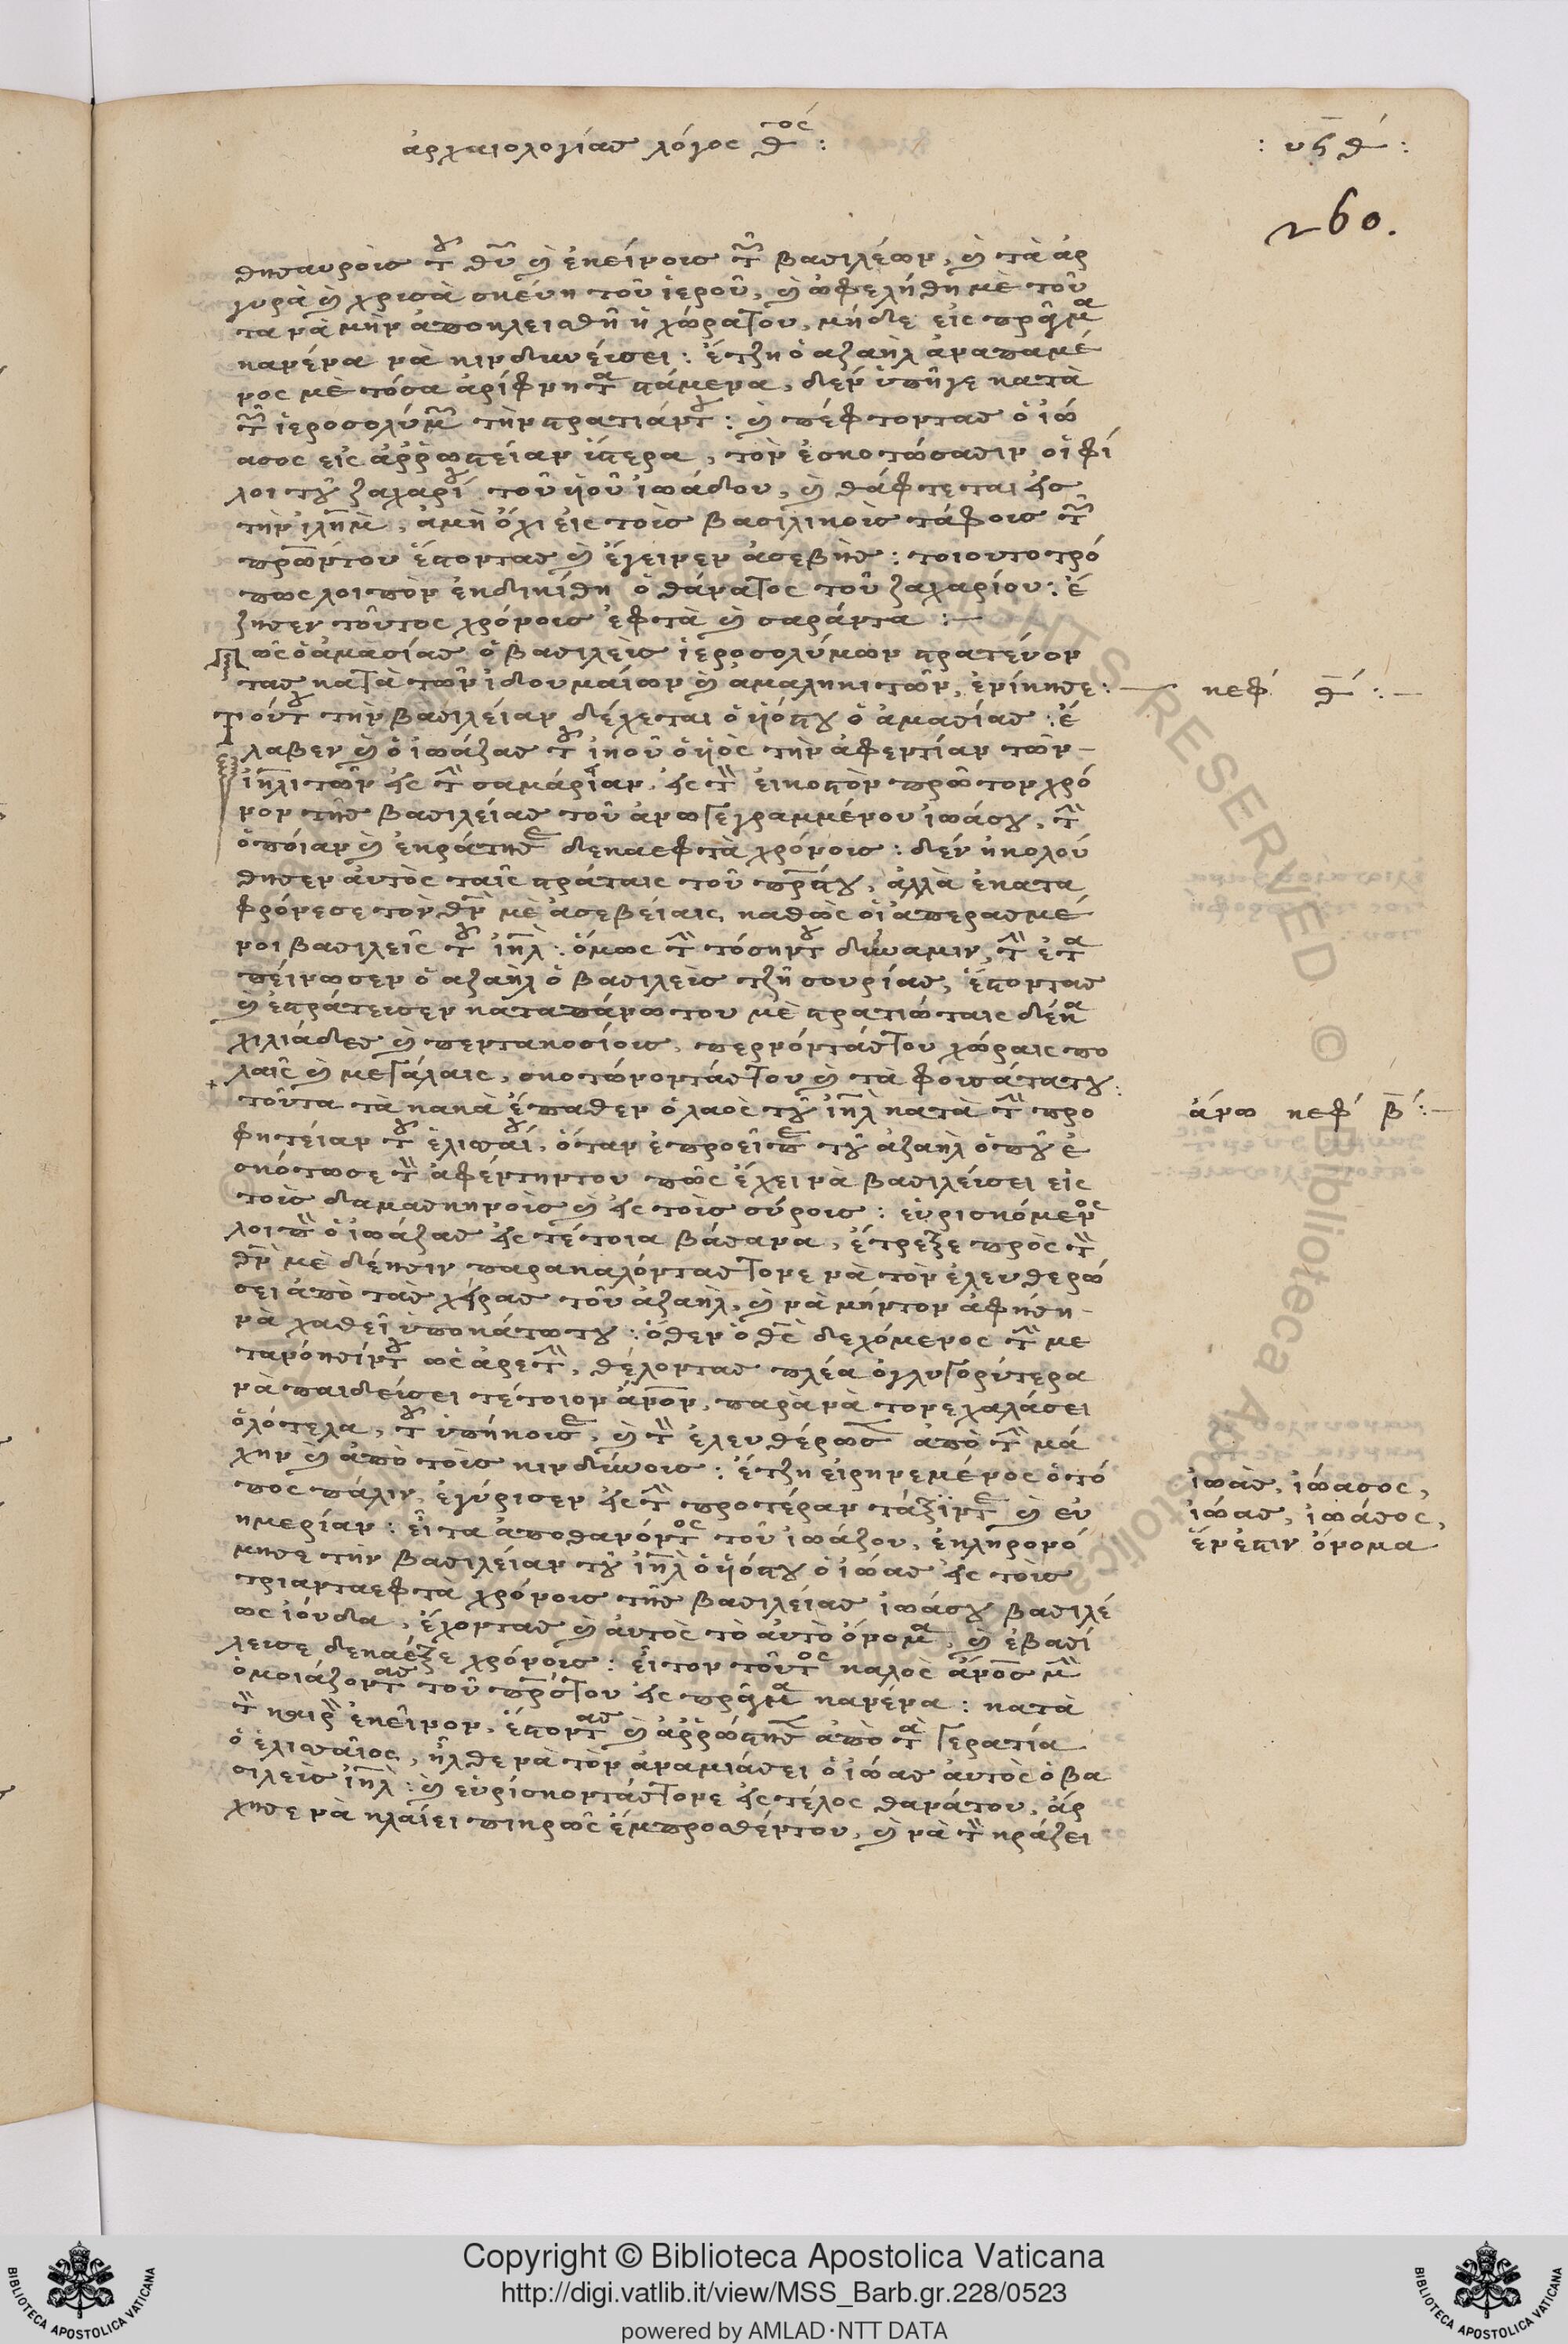 ἀρχαιολογίας λόγος θ^ος :
: υϟθ :
260.
θησαυροὶς τ^ου θῦ καὶ ἐκείνοις τῶν βασιλέων, καὶ τὰ ἀρ
γυρὰ καὶ χρισὰ σκεύη τοῦ ἱεροῦ, καὶ ὠφελήθη μὲ τοῦ
τα νὰ μὴν ἀποκλεισθῆ ἡ χώρατου, μήδε εἰς πρᾶγμα
κανένα νὰ κινδυνέυσει : ἔτζη ὁ αζαὴλ ἀναπαμέ
νος μὲ τόσα ἀρίφνητα στάμενα, δὲν ὑπῆγε κατὰ
τῶν ἱεροσολύμων τὴν στρατιάντου : καὶ πέφτοντας ὁ ἰώ
ασος εἰς ἀῤῥωστείαν ὕστερα, τὸν ἐσκοτώσασιν οἱ φί
λοι τοῦ ζαχαρίου τοῦ ὑοῦ ἰωάδου, καὶ θάφτεται εἰς
τὴν ἰλῆμ, ἀμὴ ὄχι εἰς τοὶς βασιλικοὶς τάφοις τῶν
πρῶντου ἔστοντας καὶ ἔγεινεν ἀσεβὴς : τοιουτοτρό
πως λοιπὸν ἐκδικίθη ὁ θάνατος τοῦ ζαχαρίου : ἔ
ζησεν τοῦτος χρόνοις ἐφτὰ καὶ σαράντα : —
Πῶς ὁ ἀμασίας ὁ βασιλεὶς ἱεροσολύμων στρατεύον
τας κατὰ τῶν ἰδουμαίων καὶ ἀμαληκιτῶν, ἐνίκησε : — κεφ θ : —
Τούτου τὴν βασιλείαν δέχεται ὁ ὑόςτου ὁ ἀμασίας : ἔ
λαβεν καὶ ὁ ἰωάζας τοῦ ἰηοῦ ὁ ὑὸς τὴν ἀφεντίαν τῶν —
ἰηλιτῶν εἰς τὴν σαμάριαν, εἰς τὸν εικοστὸν πρῶτον χρό
νον τῆς βασιλείας τοῦ ἀνωγεγραμμένου ἰωάσου, τὴν
ὁποίαν καὶ ἐκράτησε δεκαεφτὰ χρόνοις : δὲν ἠκολού
θησεν ἀυτὸς ταῖς στράταις τοῦ πρστου, ἀλλὰ ἐκατα
φρόνεσε τὸν θν μὲ ἀσεβείαις, καθὼς οἱ ἀπερασμέ
νοι βασιλεῖς τοῦ ἰηλ : ὅμως τὴν τόσηντου δύναμιν, τὴν ἐτα
πείνωσεν ὁ αζαὴλ ὁ βασιλεὶς τζῆ σουρίας, ἔστοντας
καὶ ἐστράτεισεν καταπάνωτου μὲ στρατιώταις δέκα
χιλιάδες καὶ πεντακοσίοις, περνόντάςτου χώραις πο
λαῖς καὶ μεγάλαις, σκοτώνοντάςτου καὶ τὰ φουσάτατου :
τοῦτα τὰ κακὰ ἔπαθεν ὁ λαὸς τοῦ ἰηλ κατὰ τὴν προ
ἄνω κεφ β : —
φητείαν τοῦ ἐλισσαίου, ὅταν ἐπροεῖπε τοῦ ἀζαὴλ ὁποῦ ἐ
σκότωσε τὸν ἀφέντηντου πῶς ἔχει νὰ βασιλεύσει εἰς
τοὶς δαμασκηνοὶς καὶ εἰς τοὶς σύροις : εὑρισκόμενος
λοιπὸν ὁ ἰωάζας εἰς τέτοια βάσανα, ἔτρεξε πρὸς τὸν
θν μὲ δέησιν παρακαλόντας τονε νὰ τὸν ἐλευθερώ
σει ἀπὸ τὰς χείρας τοῦ ἀζαὴλ, καὶ νὰ μήντον ἀφήση —
νὰ χαθεῖ ὑποκάτωτου : ὅθεν ὁ θς δεχόμενος τὴν με
τανόησίντου ὡς ἀρετὴν, θέλοντας πλέα ὀγλυγορύτερα
νὰ παιδεύσει τέτοιον ἄνον, παρὰ νὰ τονε χαλάσει
ὁλότελα, τοῦ ὑπήκουσε, καὶ τὸν ἐλευθέρωσε ἀπὸ τὴν μά
χην καὶ ἀπὸ τοὶς κινδύνοις : ἔτζη εἰρηνεμένος ὁ τό
πος πάλιν, ἐγύρισεν εἰς τὴν προτέραν τάξιντε καὶ ἐυ
ημερίαν : εἶτα ἀποθανόντος τοῦ ἰωάζου, ἐκληρονό
μησε τὴν βασιλείαν τοῦ ἰηλ ὁ ὑόςτου ὁ ἰώας εἰς τοὶς
τριανταεφτὰ χρόνοις τῆς βασιλείας ἰωάσου βασιλέ
ως ἰούδα, ἔχοντας καὶ ἀυτὸς τὸ ἀυτὸ ὄνομα, καὶ ἐβασί
λεισε δεκαέξε χρόνοις : εἶτον τοῦτος καλὸς ἄνος μὴν
ὁμοιάζοντας τοῦ πρστου εἰς πρᾶγμα κανένα : κατὰ
τὸν καιρὸν ἐκεῖνον, ἔστοντας καὶ ἀῤῥώστησε ἀπὸ τὰ γερατία
ὁ ἐλισσαῖος, ἦλθε νὰ τὸν ἀναμιάσει ὁ ἰώας ἀυτὸς ὁ βα
σιλεὶς ἰηλ : καὶ εὑρίσκοντάςτονε εἰς τέλος θανάτου, ἄρ
χησε νὰ κλαίει πικρῶς ἐμπροσθέντου, καὶ νὰ τὸν κράζει
ἰωὰς, ἰώασος,
ἰώας, ἰωάσος,
ἕνεστιν ὄνομα
Copyright © Biblioteca Apostolica Vaticana
http://digi.vatlib.it/view/MSS_Barb.gr.228/0523
powered by AMLAD·NTT DATA